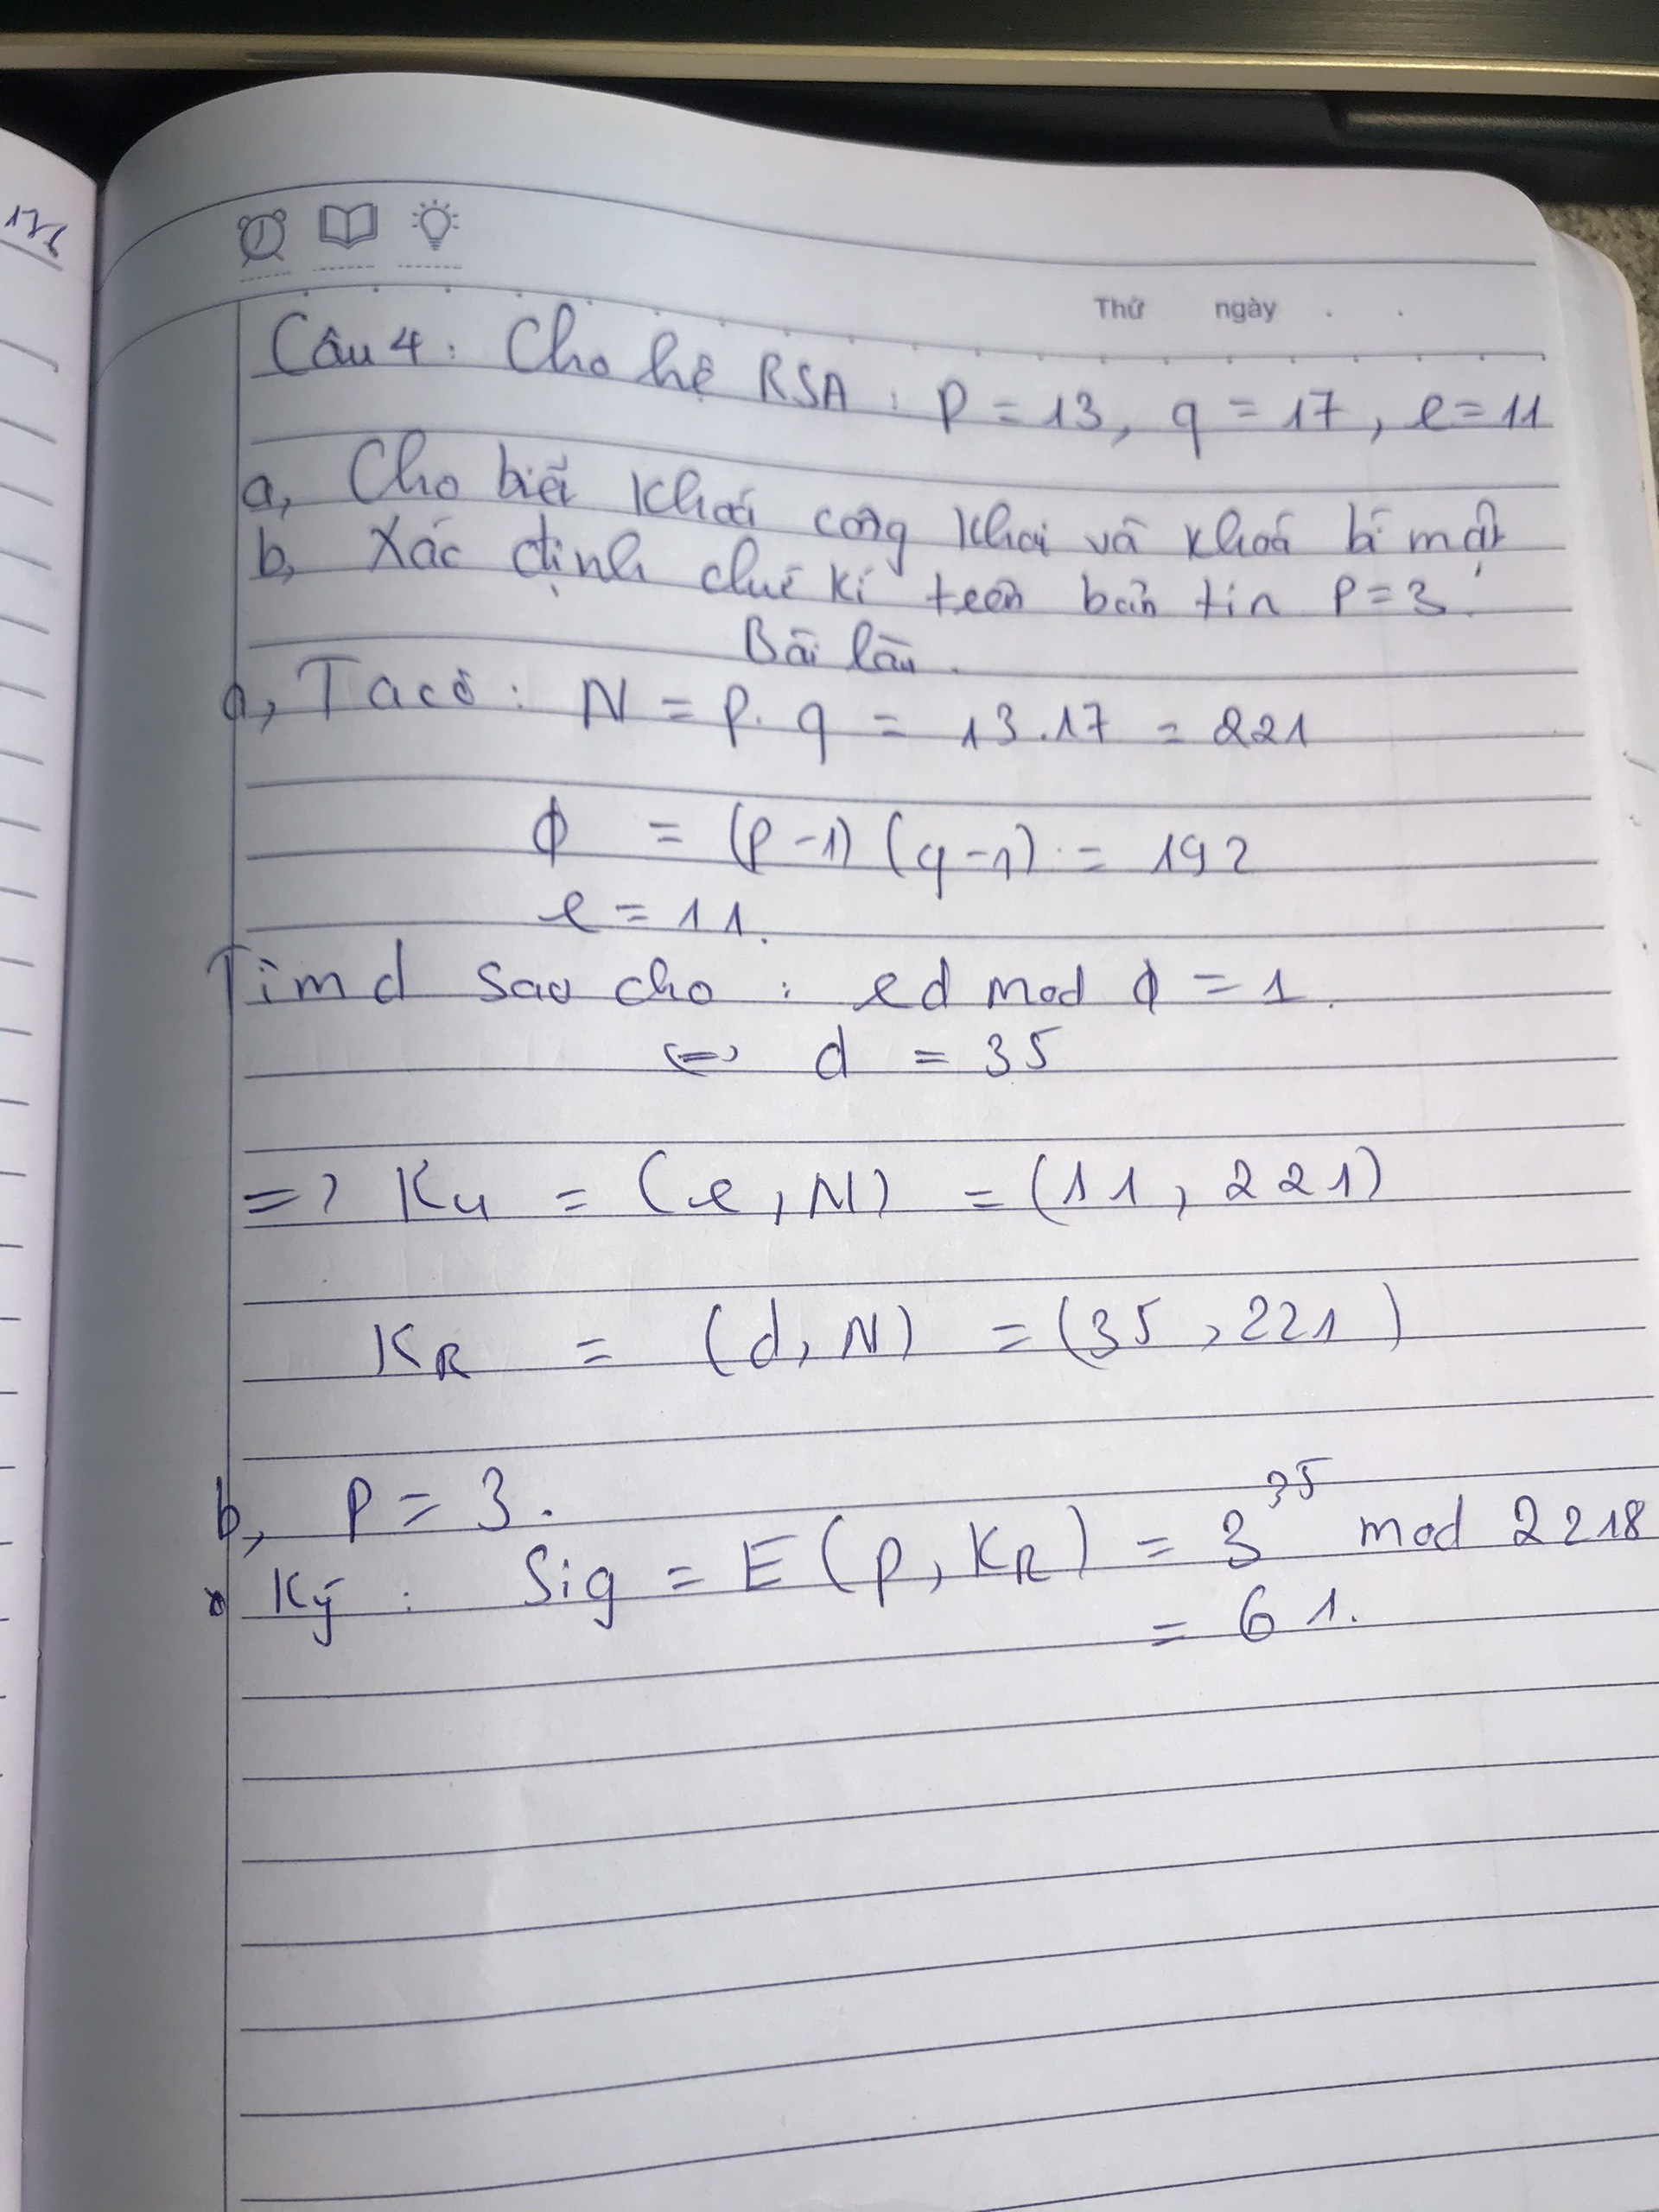 176
Thứ ngày . .
Câu 4: Cho hệ RSA : p = 13, q = 17, e = 11
a, Cho biết khoá công khai và khoá bí mật
b, Xác định chữ kí trên bản tin P = 3.
Bài làm.
a, Ta có : N = p. q = 13.17 = 221
ϕ = (p-1) (q-1) = 192
e = 11.
Tìm d sao cho : ed mod ϕ = 1.
<=> d = 35
=> Ku = (e, N) = (11, 221)
KR = (d, N) = (35, 221)
b, P = 3.
Ký : Sig = E (p, KR) = 3^35 mod 2218
= 61.